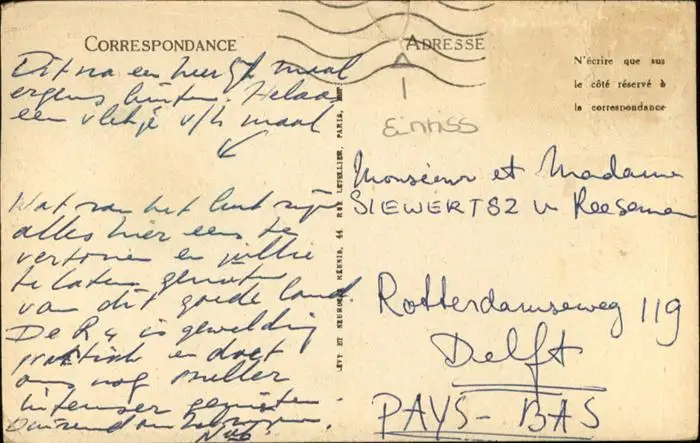 CORRESPONDANCE
Dit na een heerlijk maal
ergens buiten. Helaas
een vlekje v/h maal
Wat zou het leuk zijn
alles hier eens te
vertonen en jullie
te laten genieten
van dit goede land.
De R4 is geweldig
praktisch en doet
ons nog sneller
intenser genieten.
Duizend
LEVY ET NEURDEIN RÉUNIS, 44 RUE LETELLIER, PARIS, IMP
ADRESSE
N'écrire que sur
le côté réservé à
la correspondance
Monsieur et Madame
SIEWERTSZ v Reesema
Rotterdamseweg 119
Delft
PAYS-BAS